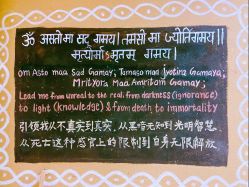 ॐ असतो मा सद् गमय। तमसो मा ज्योतिर्गमय।।
मृत्योर्मामृतम् गमय।
om Asto Maa Sad Gamay; Tamaso maa Jyotira Gamaya;
Mrityora Maa Amritam Gamay;
Lead me from unreal to the real. from darkness (ignorance)
to light (knowledge) & from death to immortality
引领我从不真实到真实，从黑暗无知到光明智慧，
从死亡这种感官上的限制到自身无限解放